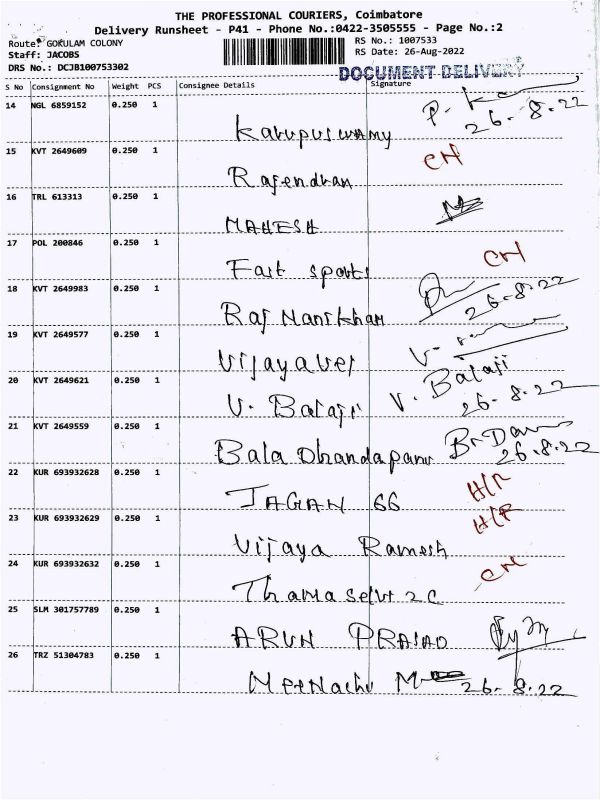 THE PROFESSIONAL COURIERS, Coimbatore
Delivery Runsheet - P41 - Phone No.:0422-3505555 - Page No.:2
Route: GOKULAM COLONY RS No.: 1007533
Staff: JACOBS RS Date: 26-Aug-2022
DRS No.: DCJB100753302
DOCUMENT DELIVERY
S No Consignment No Weight PCS Consignee Details Signature
14 NGL 6859152 0.250 1
Karupuswamy 26-8-22
15 KVT 2649609 0.250 1 CN
Rajendhan
16 TRL 613313 0.250 1
MAHESH
17 POL 200846 0.250 1
Fast sports CN
18 KVT 2649983 0.250 1
Raj Manikham 26-8-22
19 KVT 2649577 0.250 1
Vijayavel
20 KVT 2649621 0.250 1
V. Balaji V. Balaji 26-8-22
21 KVT 2649559 0.250 1
Bala Dhandapani 26-8-22
22 KUR 693932628 0.250 1
JAGAN 66 H/R
23 KUR 693932629 0.250 1 H/R
Vijaya Ramesh
24 KUR 693932632 0.250 1 CN
Thamaselvi 2C
25 SLM 301757789 0.250 1
ARUN PRASAD
26 TRZ 51304783 0.250 1
Meenachi M 26-8-22